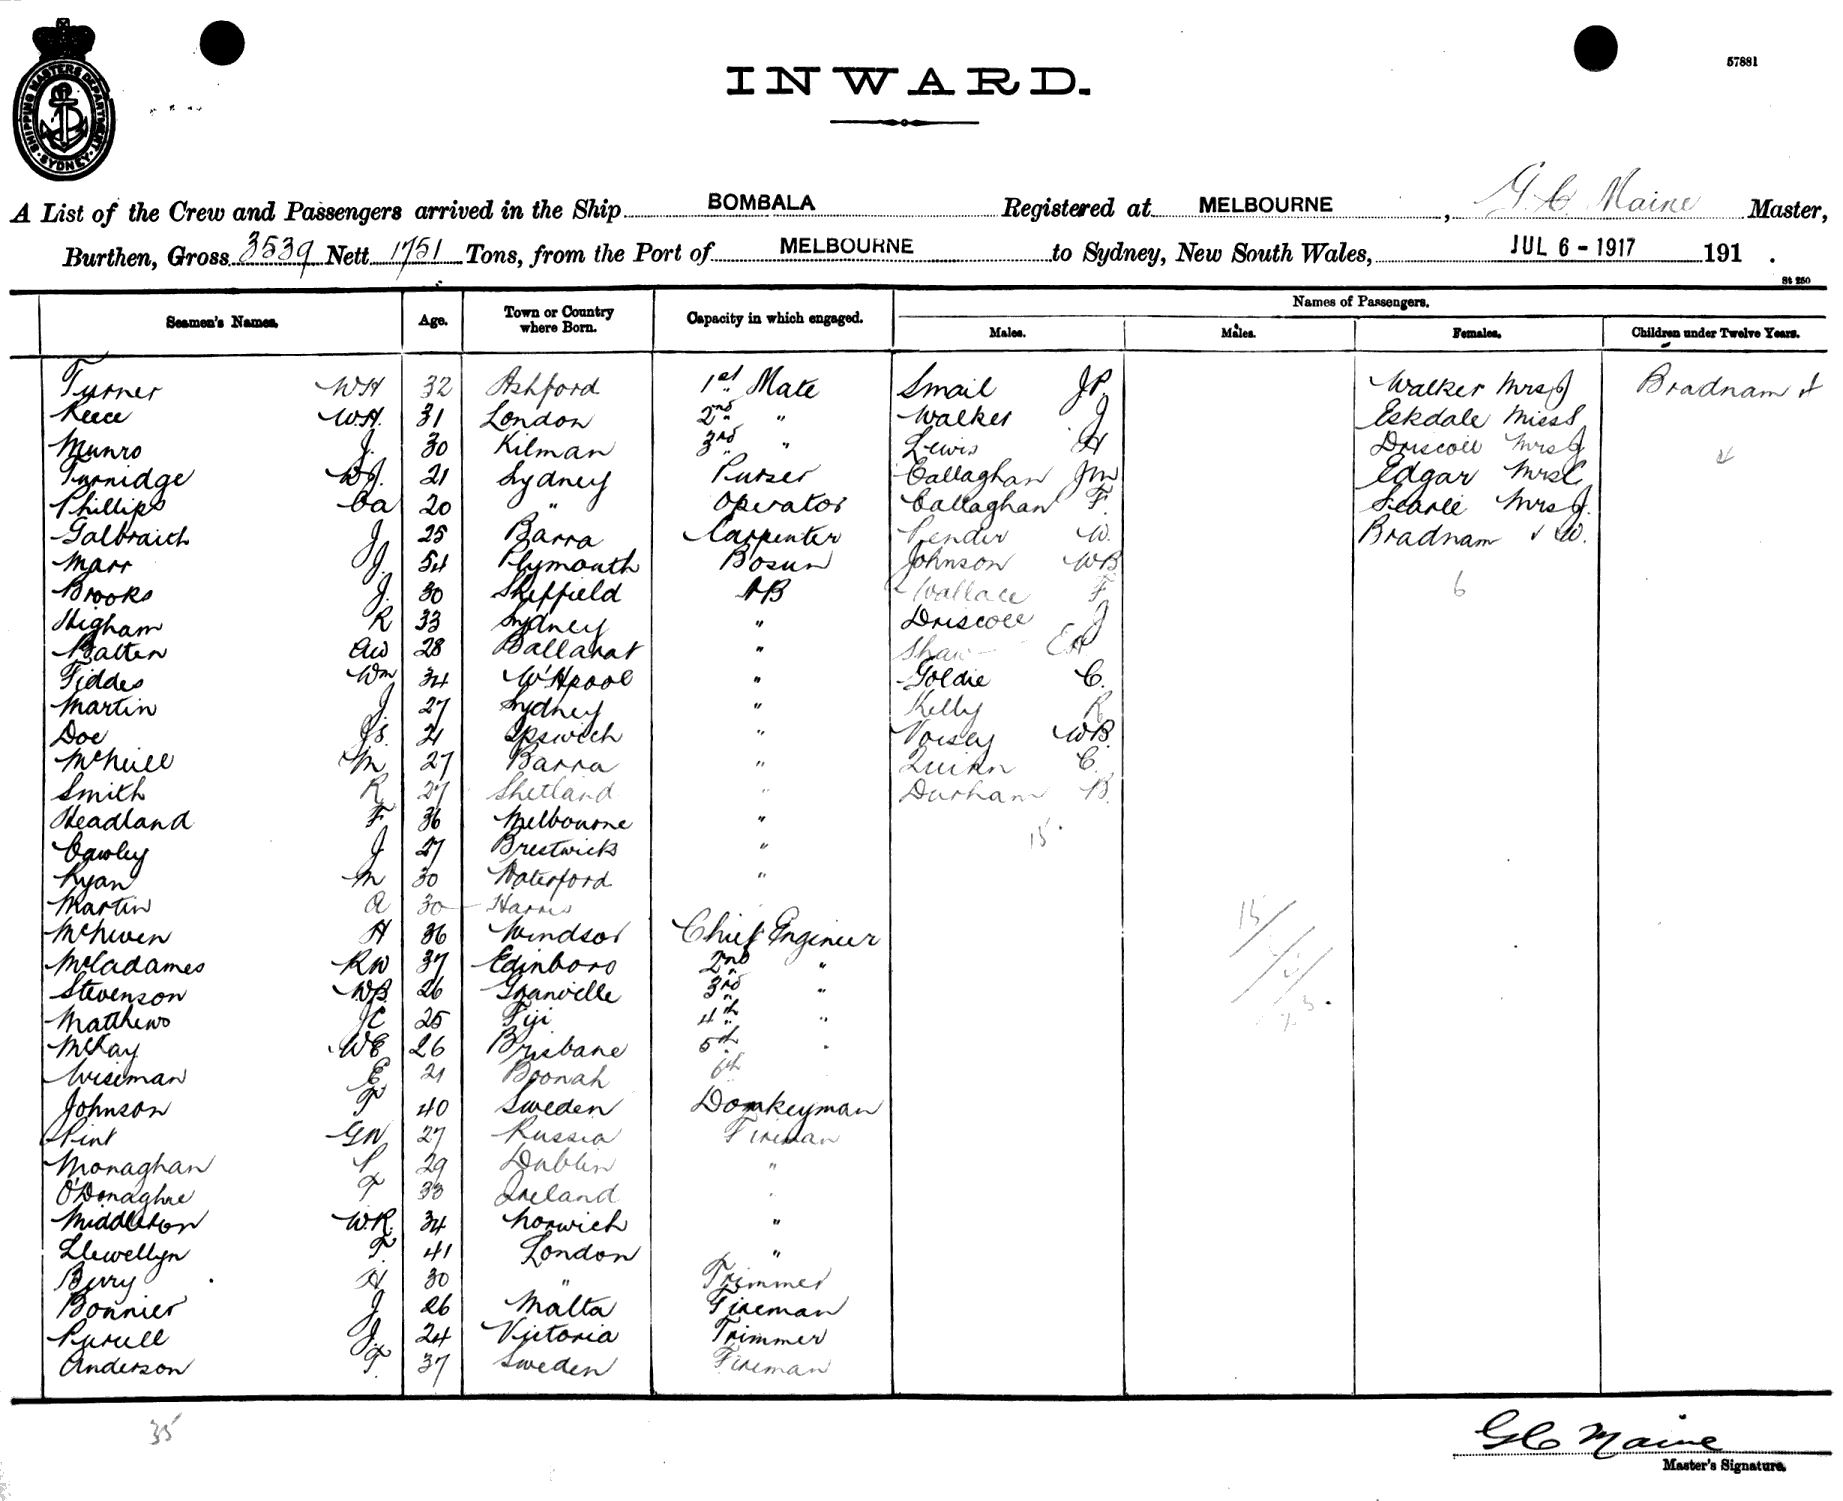 SHIPPING MASTERS DEPARTMENT SYDNEY
57881
INWARD.
A List of the Crew and Passengers arrived in the Ship BOMBALA Registered at MELBOURNE, G. C. Maine Master,
Burthen, Gross 3539 Nett 1751 Tons, from the Port of MELBOURNE to Sydney, New South Wales, JUL 6 - 1917 191 .
St 250
Seamen's Names. Age. Town or Country where Born. Capacity in which engaged. Names of Passengers.
Males. Males. Females. Children under Twelve Years.
Turner WH 32 Ashford 1st Mate Smail JP. Walker Mrs J Bradnam
Reece W.H. 31 London 2nd " Walker J Eskdale Miss
Munro J. 30 Kilman 3rd " Lewis H Driscoll Mrs J
Turnidge 21 Sydney Purser Callaghan JM Edgar Mrs C
Phillips Ca 20 " Operator Callaghan F. Searle Mrs J.
Galbraith J 25 Barra Carpenter Pender W. Bradnam W.
Marr J. 54 Plymouth Bosun Johnson WB
Brooks J. 30 Sheffield AB Wallace F 6
Higham R 33 Sydney " Driscoll J
Batten AW 28 Ballarat " Shaw EH
Fiddes Wm 34 W'Hpool " Goldie C.
Martin J 27 Sydney " Kelly R
Doe Js. 21 Ipswich " Voisey WB.
McNeill M 27 Barra " Quinn C.
Smith R 27 Shetland " Durham B.
Headland F 36 Melbourne " 15
Cawley J 27 Brestwick "
Ryan M 30 Waterford "
Martin A 30 Harris
McNiven H 36 Windsor Chief Engineer 15/
McCadames RW 37 Edinboro 2nd "
Stevenson WB 26 Granville 3rd "
Matthews JC 25 Fiji 4th "
McKay WE 26 Brisbane 5th "
Wiseman E 21 Boonah 6th
Johnson F 40 Sweden Donkeyman
Pint GW 27 Russia Fireman
Monaghan P 29 Dublin "
O'Donaghue F 33 Ireland "
Middleton WR. 34 Norwich "
Llewellyn F. 41 London "
Berry H 30 " Trimmer
Bonnier J 26 Malta Fireman
Purcell J. 24 Victoria Trimmer
Anderson F. 37 Sweden Fireman
35
G C Maine
Master's Signature.